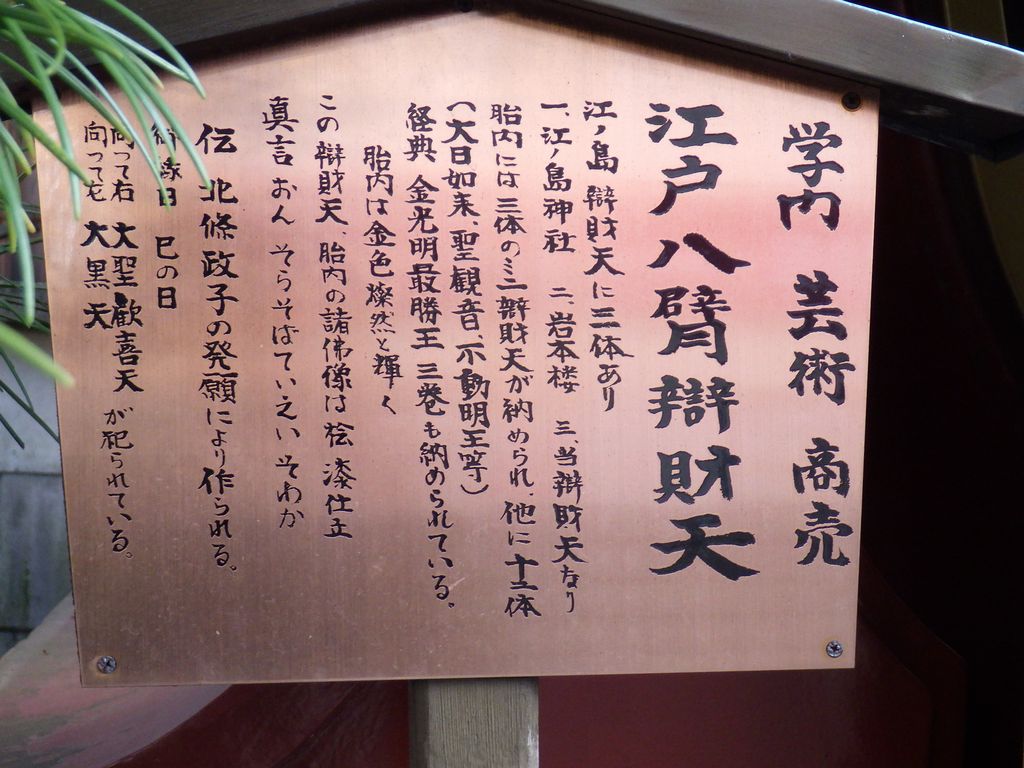 学内 芸術 商売
江戸八臂辯財天
江ノ島 辯財天に三体あり
一、江ノ島神社 二、岩本楼 三、当辯財天なり
胎内には三体のミニ辯財天が納められ、他に十二体
(大日如来、聖観音、不動明王等)
経典 金光明最勝王 三巻も納められている。
胎内は金色燦然と輝く
この辯財天、胎内の諸佛像は桧 漆仕立
真言 おん そらそばていえい そわか
伝 北條政子の発願により作られる。
御縁日 巳の日
向って右 大聖歓喜天
向って左 大黒天 が祀られている。